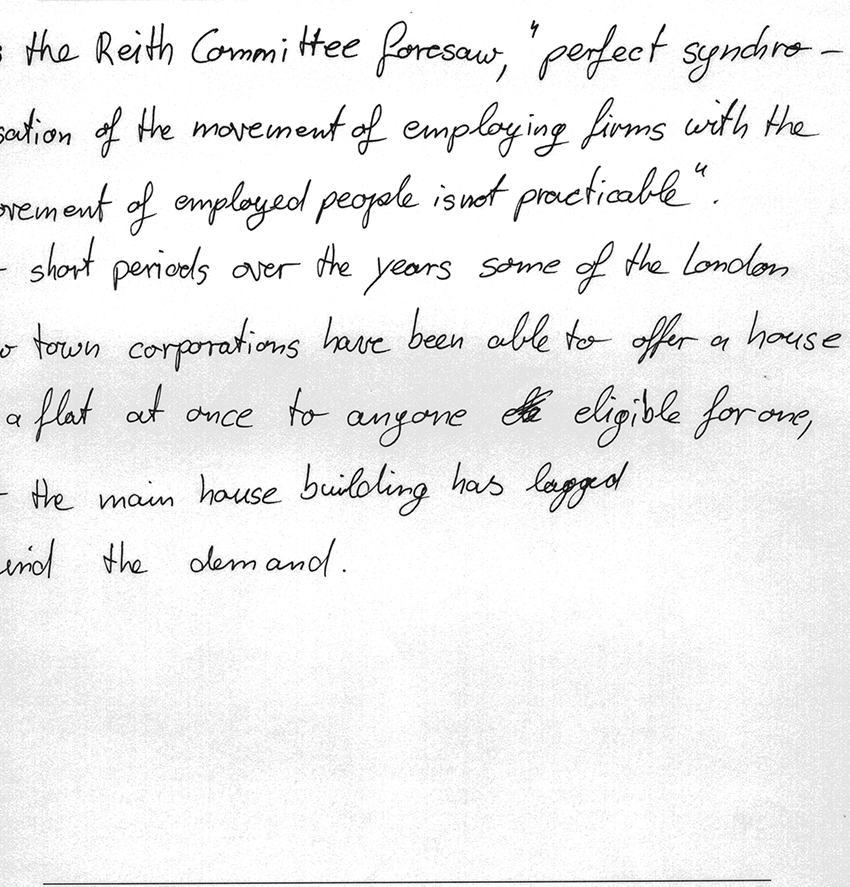 the Reith Committee foresaw, "perfect synchro-
sation of the movement of employing firms with the
ovement of employed people is not practicable".
short periods over the years some of the London
town corporations have been able to offer a house
a flat at once to anyone eligible for one,
the main house building has lagged
the demand.